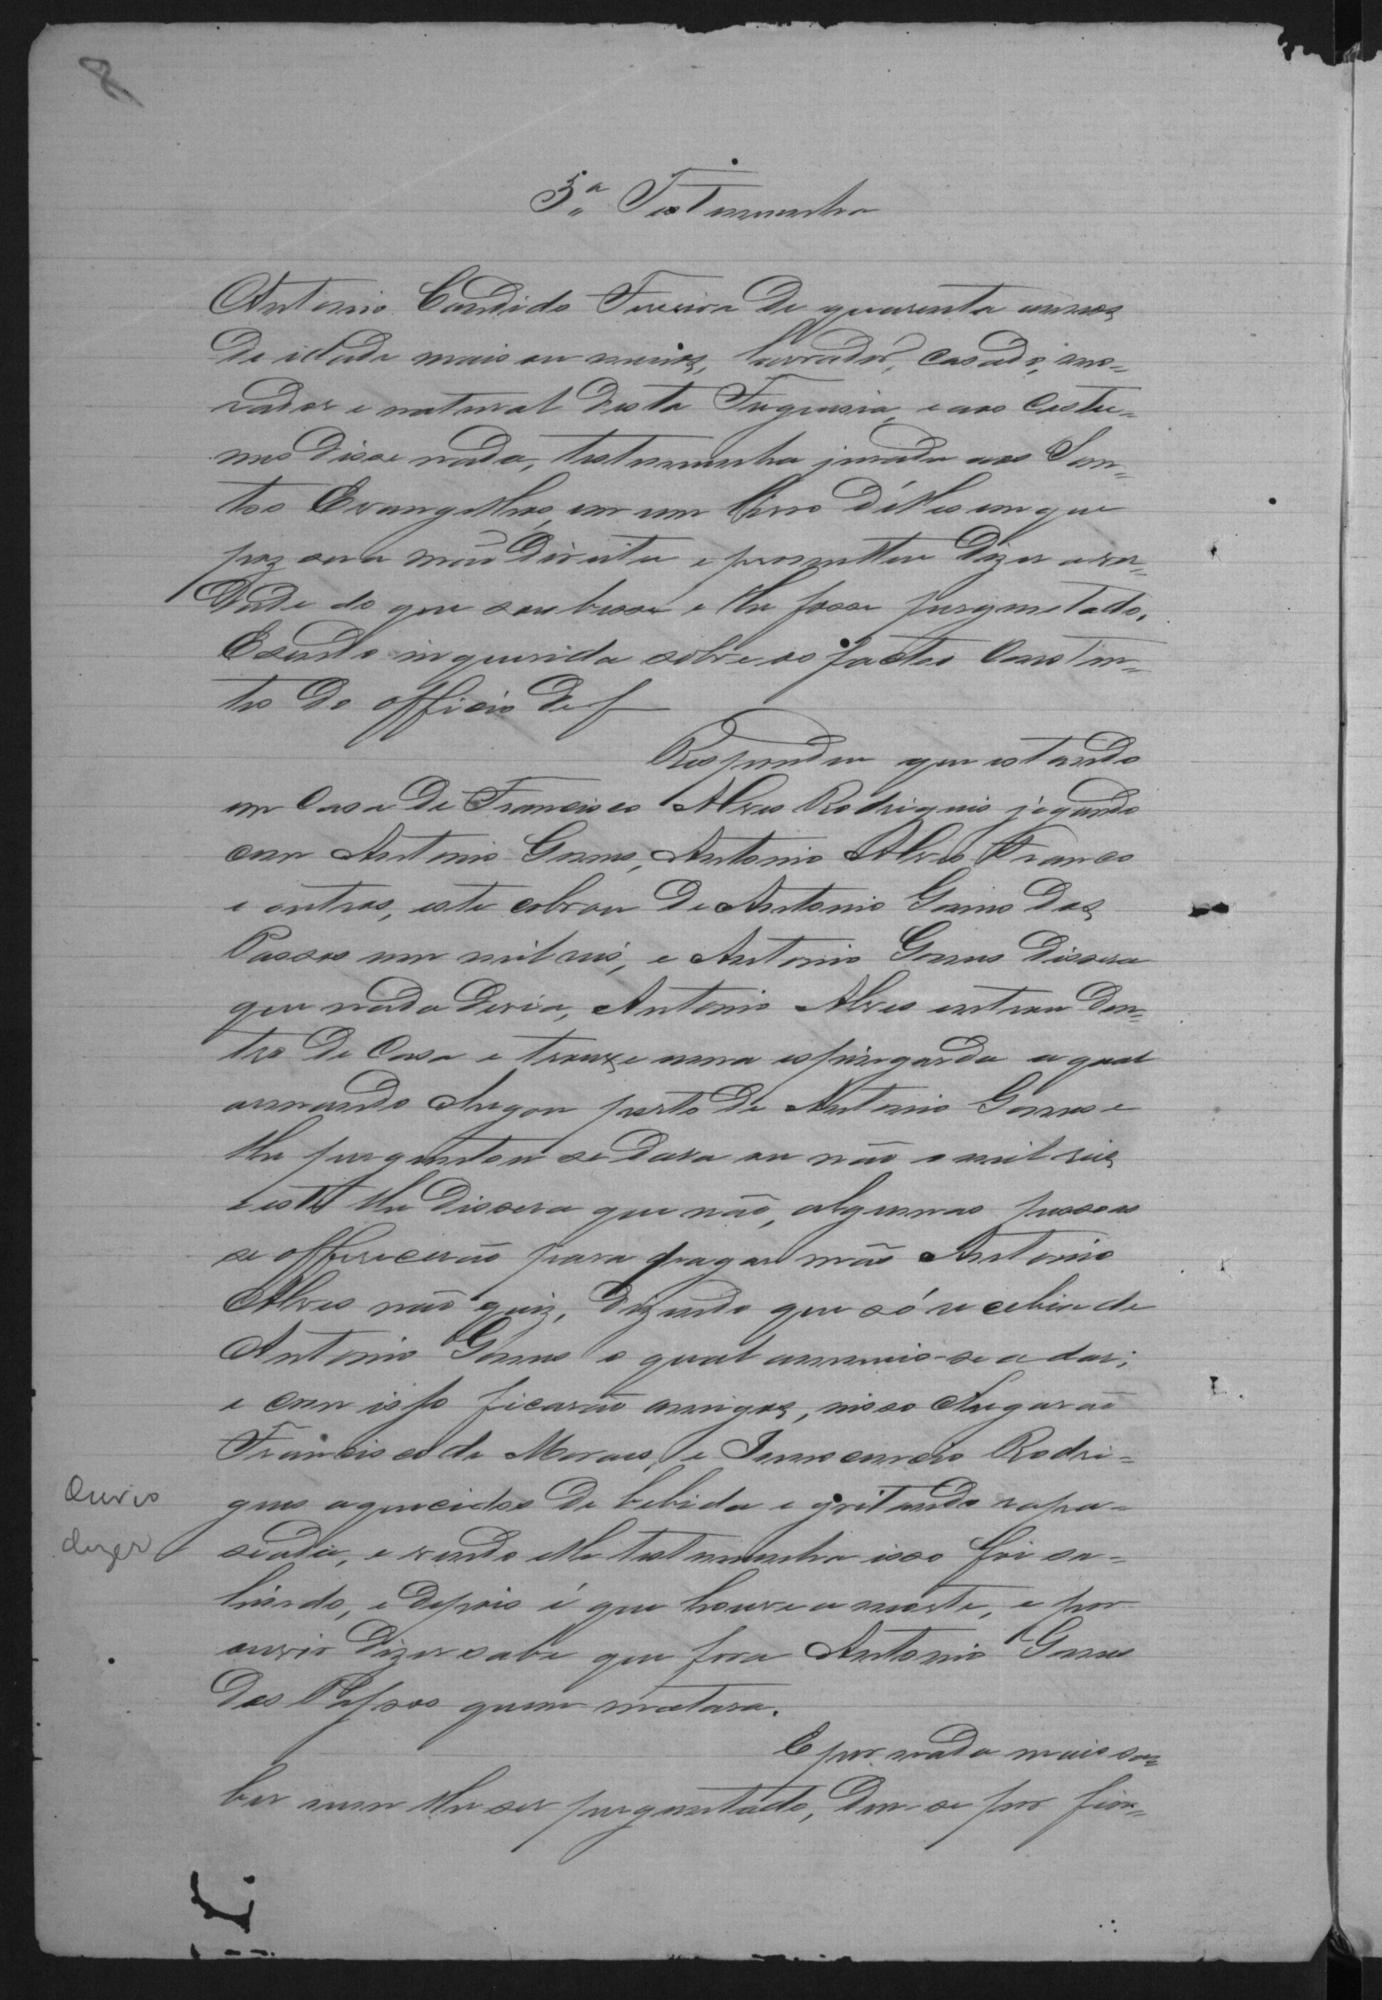 8
5ª Testemunha
Antonio Candido Ferreira de quarenta annos
de idade mais ou menos, lavrador, casado, mo-
rador e natural desta Freguesia, e aos costu-
mes disse nada, testemunha jurada aos San-
tos Evangelhos, em um livro d'elles em que
poz sua mão direita e prometteu dizer a ver-
dade do que soubesse e lhe fosse perguntado.
E sendo inquerida sobre os factos constan-
tes do officio de f
Respondeu que estando
em casa de Francisco Alves Rodrigues jogando
com Antonio Gomes, Antonio Alves Franco
e outros, este cobrou de Antonio Gomes dos
Passos um mil reis, e Antonio Gomes dissera
que nada devia, Antonio Alves entrou den-
tro de casa e trouxe uma espingarda a qual
armando chegou perto de Antonio Gomes e
lhe perguntou se dava ou não o mil reis
e este lhe dissera que não, algumas pessoas
se offerecerão para pagar mas Antonio
Alves não quiz, dizendo que só recebia de
Antonio Gomes o qual annuio-se a dar;
e com isso ficarão amigos, nisso chegarão
Francisco de Moraes, e Innocencio Rodri-
gues aquecidos de bebida e gritando rapa-
seada, e vendo elle testemunha isso foi sa-
hindo, e depois é que houve a morte, e por
ouvir dizer sabe que fora Antonio Gomes
dos Passos quem matara.
E por nada mais sa-
ber nem lhe ser perguntado, deu-se por fin-
Ouvio
dizer